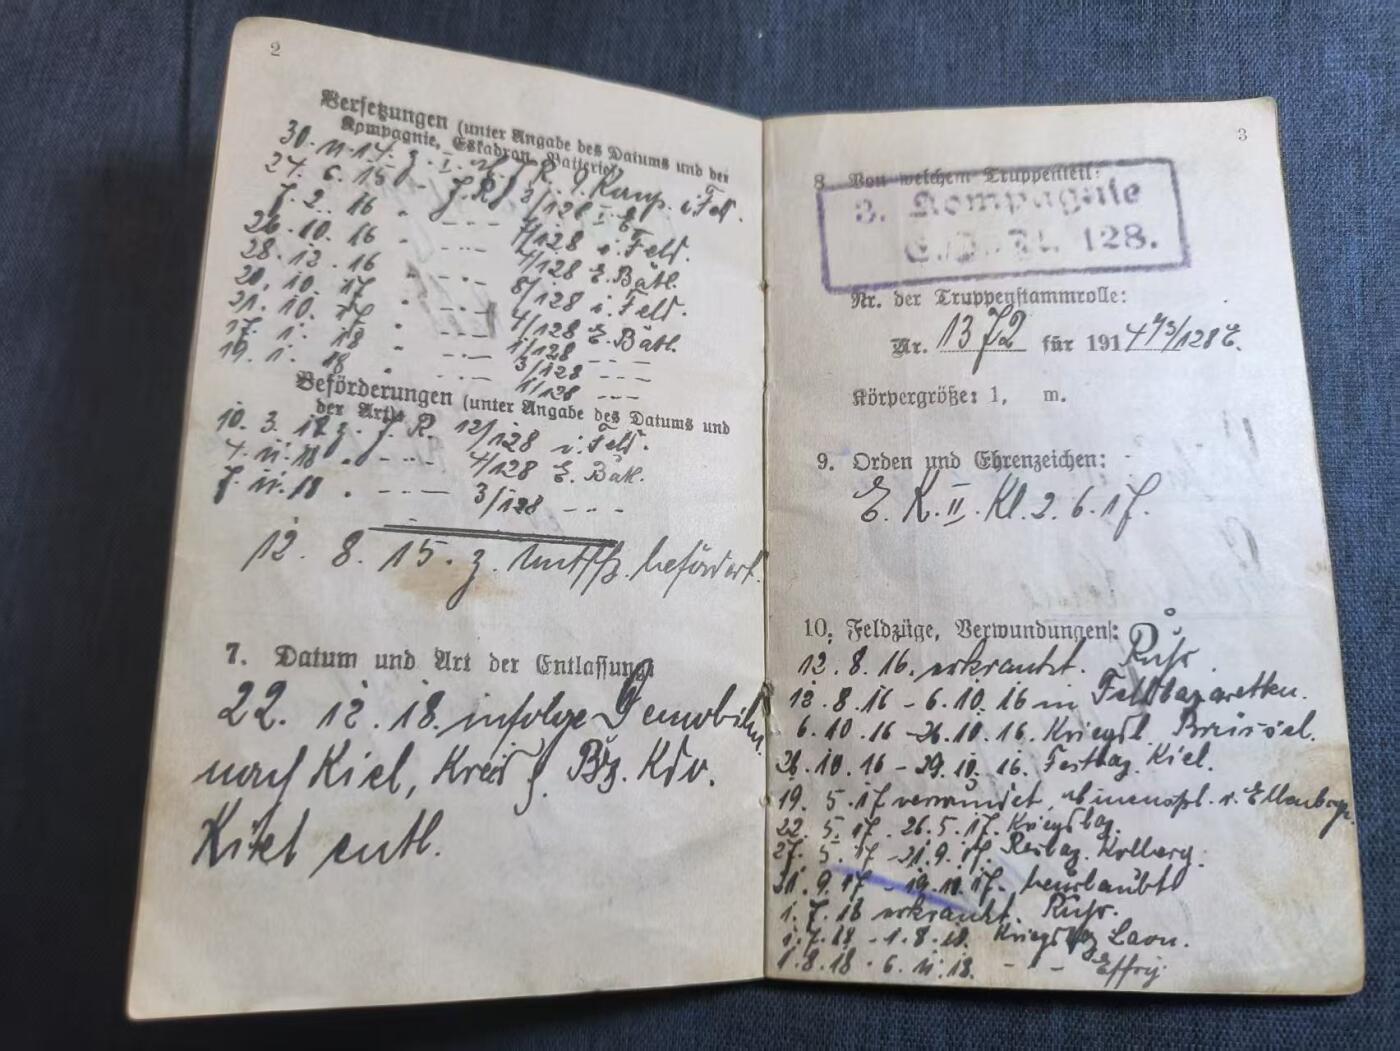 2
Versetzungen (unter Angabe des Datums und der
Kompagnie, Eskadron, Batterie)
30. 11. 14. z. I. R. 9. Komp. i. Feld.
24. 6. 15 J. R. 3/128 I. E.
7. 2. 16 " - - - 7/128 i. Feld.
26. 10. 16 " - - - 4/128 E. Batl.
28. 12. 16 " - - - 8/128 i. Feld.
20. 10. 17 - - - 4/128 E. Batl.
21. 10. 17 " - - - 1/128 - - -
17. 1. 18 " - - - 3/128 - - -
19. 1. 18 " - - - 1/128 - - -
Beförderungen (unter Angabe des Datums und
der Art):
10. 3. 18 z. J. R. 12/128 i. Feld.
4. 11. 18 " - - - 4/128 E. Batl.
7. 11. 18 " - - - 3/128 - - -
12. 8. 15. z. Untffz. befördert.
7. Datum und Art der Entlassung:
22. 12. 18. infolge Demobilm.
nach Kiel, Kreis Bz. Kdo.
Kiel entl.
3
8. Von welchem Truppenteil:
3. Kompagnie
128.
Nr. der Truppenstammrolle:
Nr. 1372 für 1914 /128 E.
Körpergröße: 1, m.
9. Orden und Ehrenzeichen:
E. K. II. Kl. 2. 6. 17.
10. Feldzüge, Verwundungen:
12. 8. 16. erkrankt. Ruhr.
12. 8. 16 - 6. 10. 16 in Feldlazaretten.
6. 10. 16 - 26. 10. 16. Kriegsl. Brüssel.
26. 10. 16 - 29. 10. 16. Festlaz. Kiel.
19. 5. 17 verwundet, Minenspl. r. Ellenboge.
22. 5. 17. - 26. 5. 17. Kriegslaz.
27. 5. 17 - 21. 9. 17. Reslaz. Kolberg.
21. 9. 17 - 19. 10. 17. beurlaubt
1. 7. 18 erkrankt. Ruhr.
1. 7. 18 - 1. 8. 18. Kriegslaz Laon.
1. 8. 18 - 6. 11. 18. - - Effry